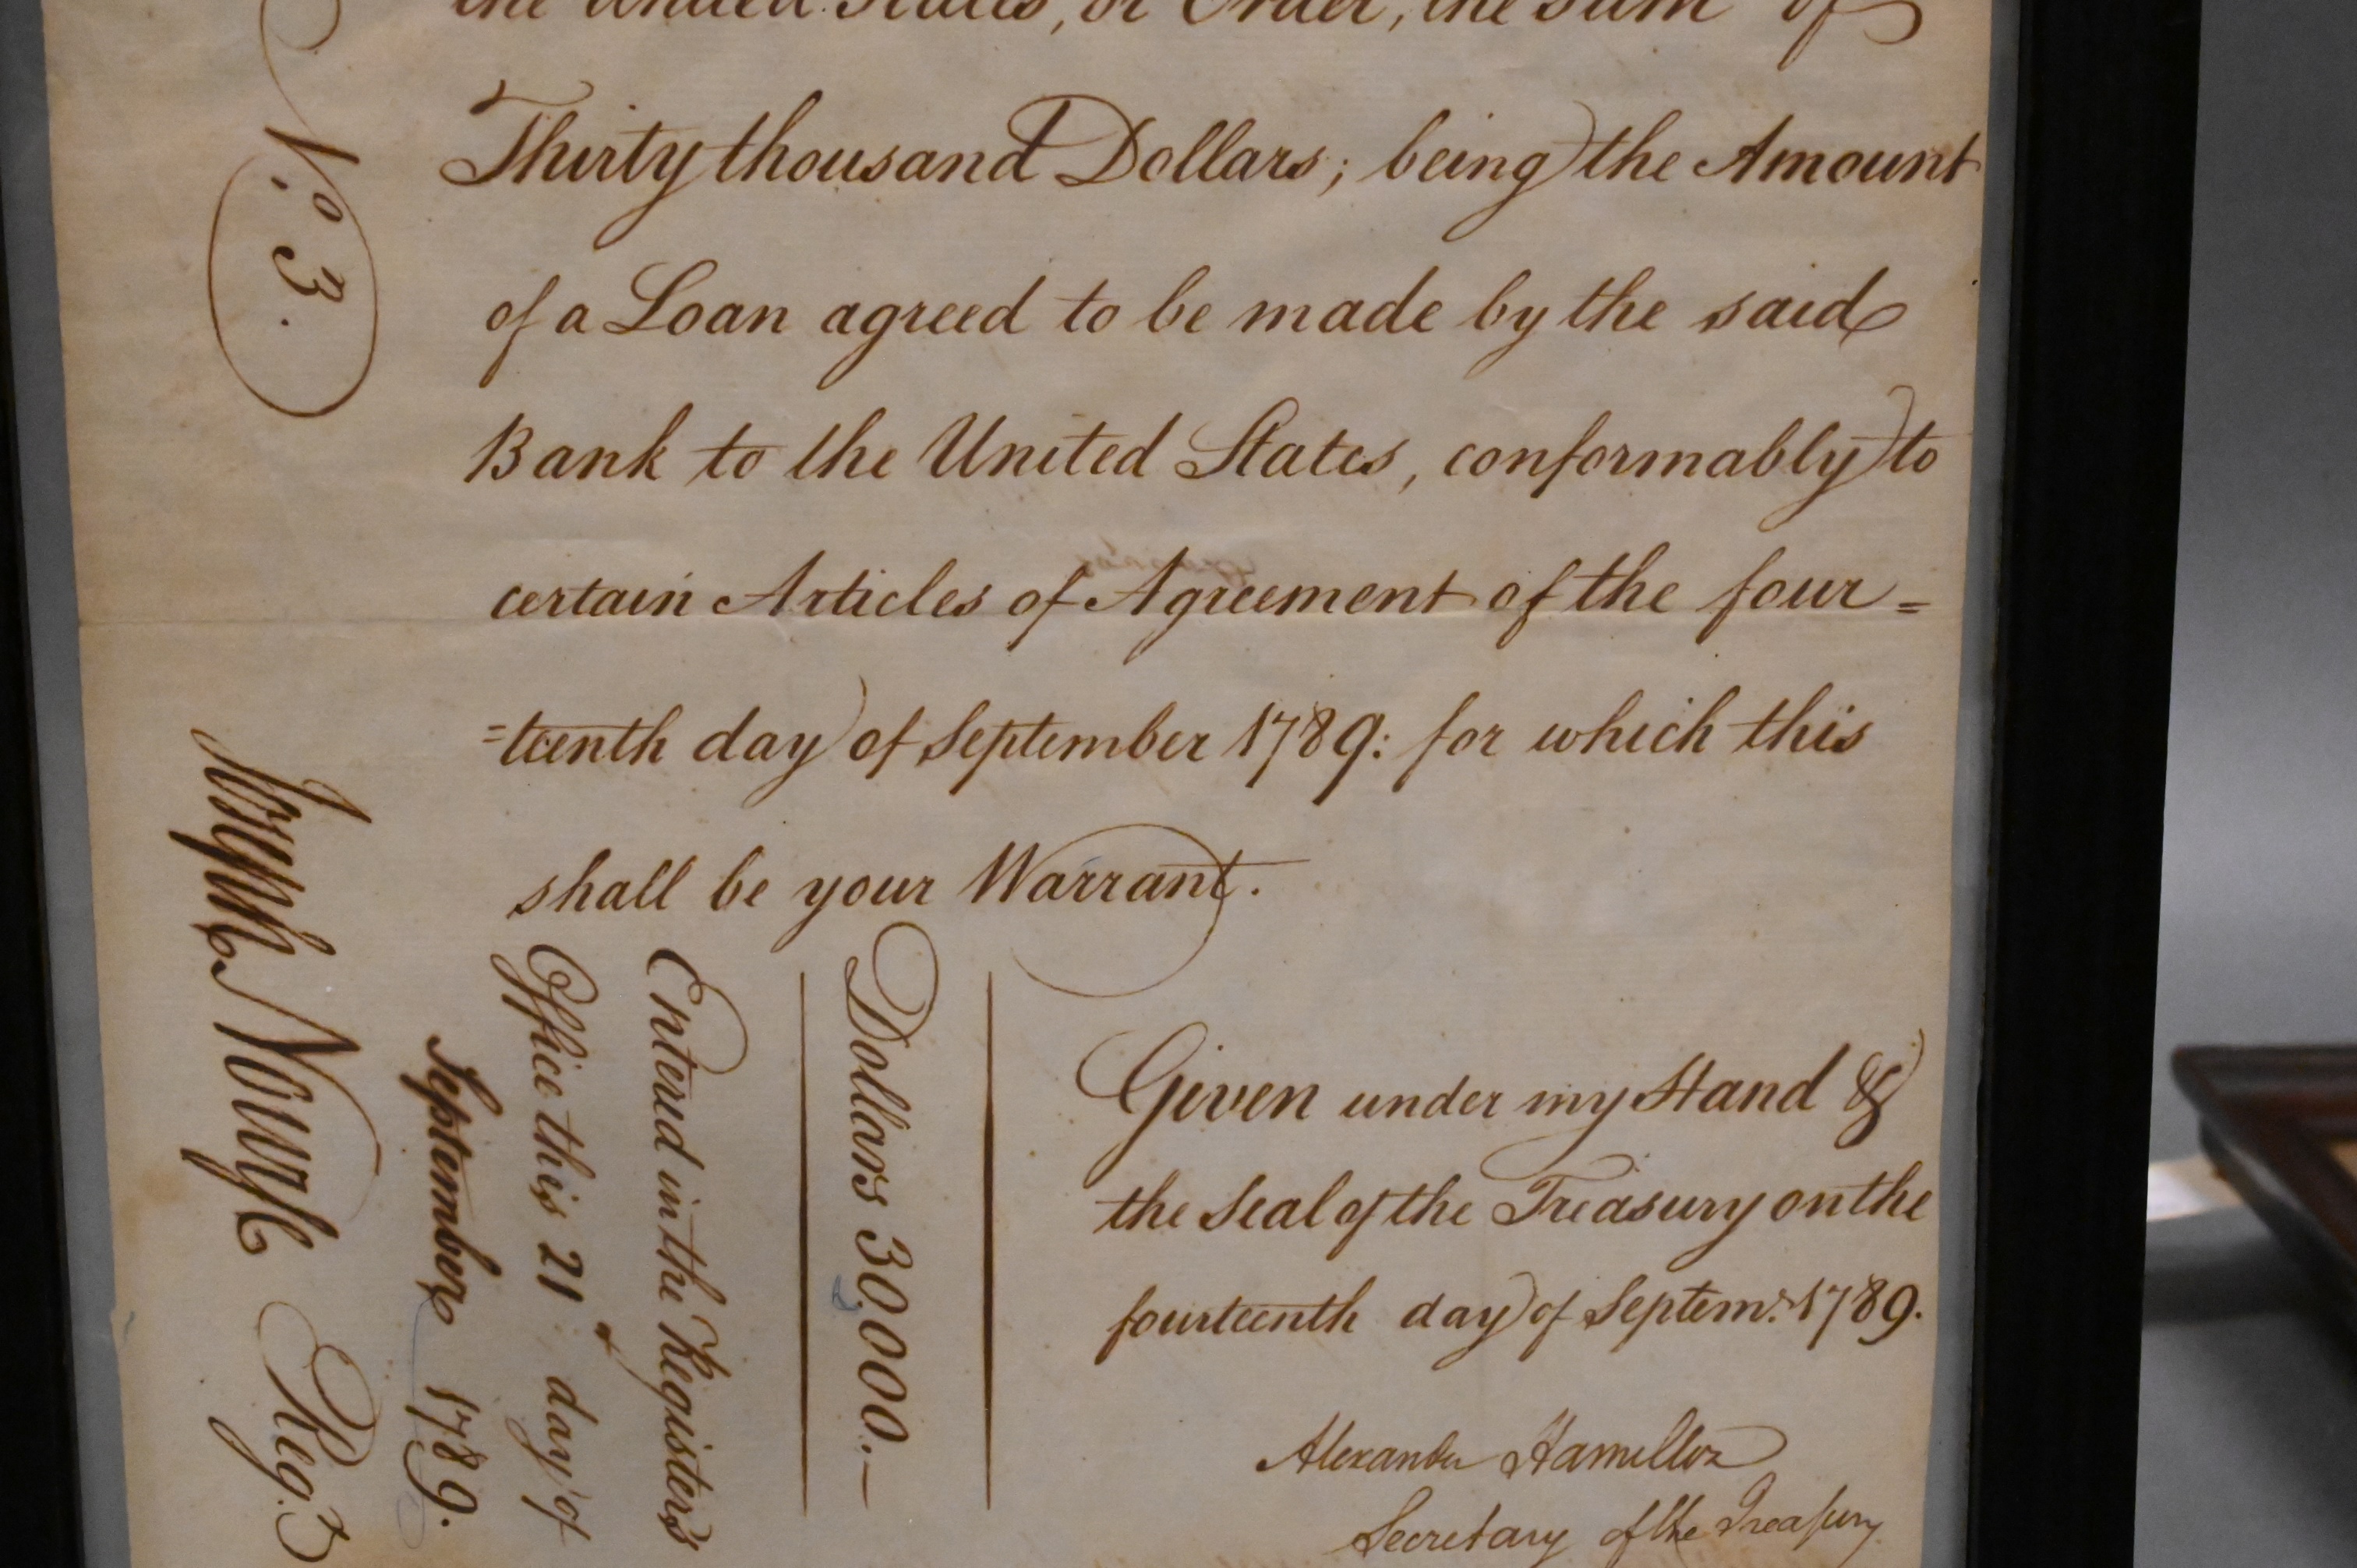 the United States, or Order, the Sum of
Thirty thousand Dollars; being the Amount
of a Loan agreed to be made by the said
Bank to the United States, conformably to
certain Articles of Agreement of the four=
=teenth day of September 1789: for which this
shall be your Warrant.
Given under my Hand &
the Seal of the Treasury on the
fourteenth day of Septemr. 1789.
Alexander Hamilton
Secretary of the Treasury
No. 3.
Dollars 30,000.—
Entered in the Registers
Office this 21st day of
September 1789.
Joseph Nourse Reg.